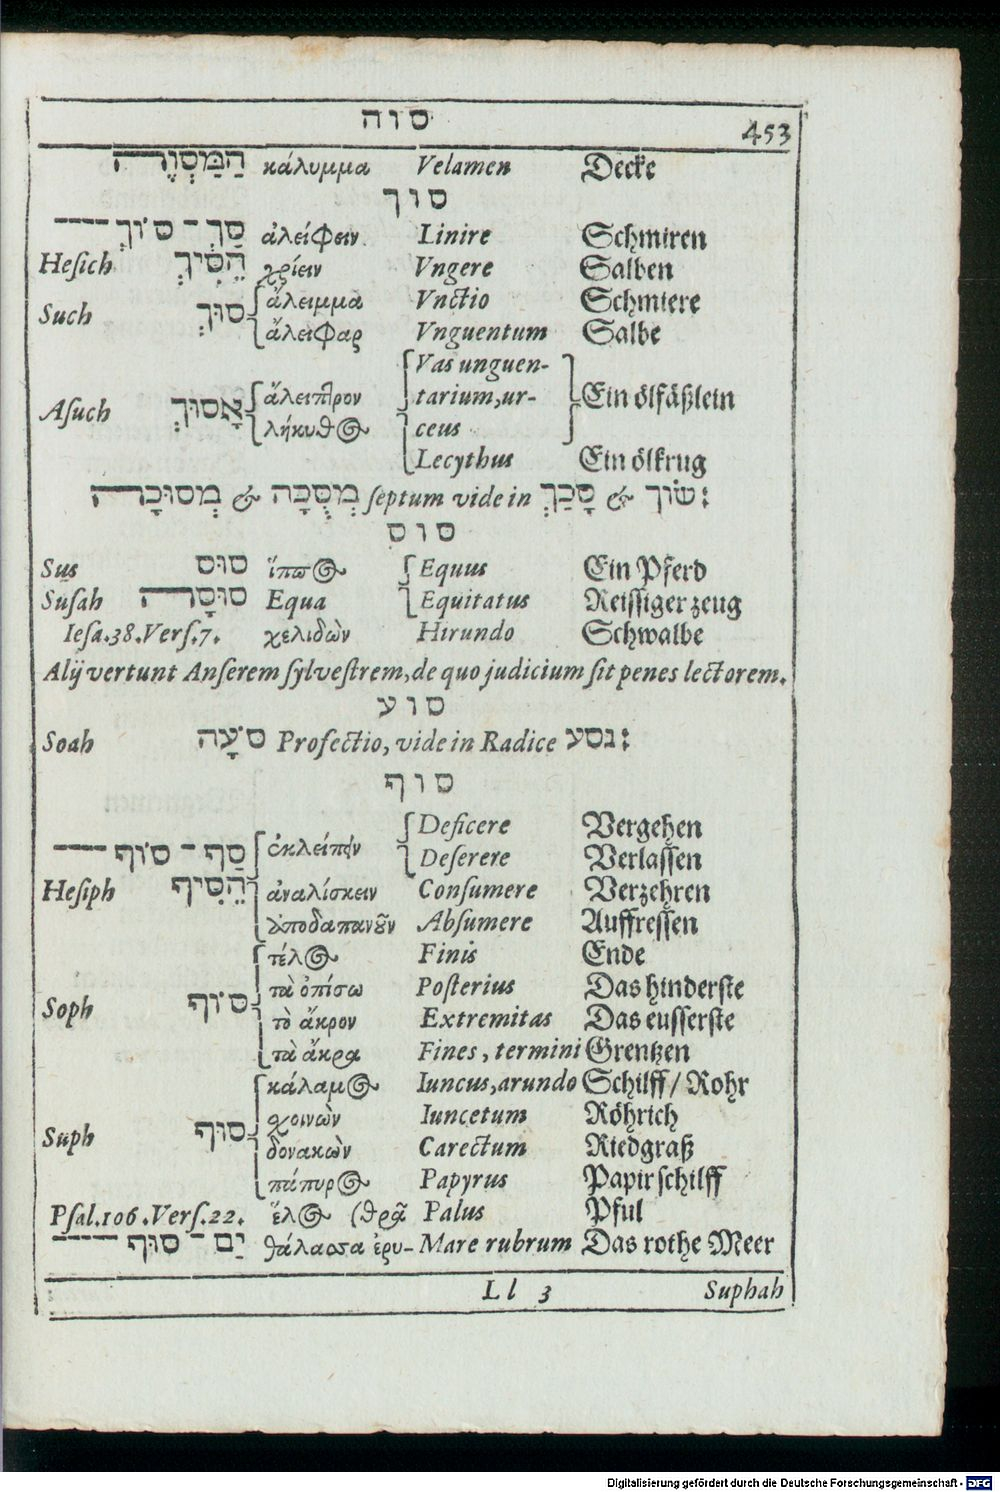 סוה 453
הַמַּסְוֶה κάλυμμα Velamen Decke
סוך
סַךְ - סוֹךְ ἀλείφειν Linire Schmiren
Hesich הֵסִיךְ χρίειν Vngere Salben
ἄλειμμα Vnctio Schmiere
Such סוּךְ
ἄλειφαρ Vnguentum Salbe
Vas unguen-
ἄλειπτρον tarium, ur- Ein ölfäßlein
Asuch אָסוּךְ
λήκυθος ceus
Lecythus Ein ölkrug
מְסוּכָה & מְסֻכָּה septum vide in סָכַךְ & שׂוּךְ:
סוס
Sus סוּס ἵππος Equus Ein Pferd
Susah סוּסָה Equa Equitatus Reissiger zeug
Iesa.38.Vers.7. χελιδὼν Hirundo Schwalbe
Alij vertunt Anserem sylvestrem, de quo judicium sit penes lectorem.
סוע
Soah סֹעָה Profectio, vide in Radice נסע:
סוף
Deficere Vergehen
סַף - סוֹף ἐκλείπειν
Deserere Verlassen
Hesiph הֵסִיף ἀναλίσκειν Consumere Verzehren
ἀποδαπανοῦν Absumere Auffressen
τέλος Finis Ende
τὰ ὀπίσω Posterius Das hinderste
Soph סוֹף
τὸ ἄκρον Extremitas Das eusserste
τὰ ἄκρα Fines, termini Grentzen
κάλαμος Iuncus, arundo Schilff / Rohr
σχοινὼν Iuncetum Röhrich
Suph סוּף
δονακὼν Carectum Riedgraß
πάπυρος Papyrus Papirschilff
Psal.106.Vers.22. ἕλος (θρᾶ Palus Pful
יַם - סוּף θάλασσα ἐρυ- Mare rubrum Das rothe Meer
Ll 3 Suphah
Digitalisierung gefördert durch die Deutsche Forschungsgemeinschaft - DFG